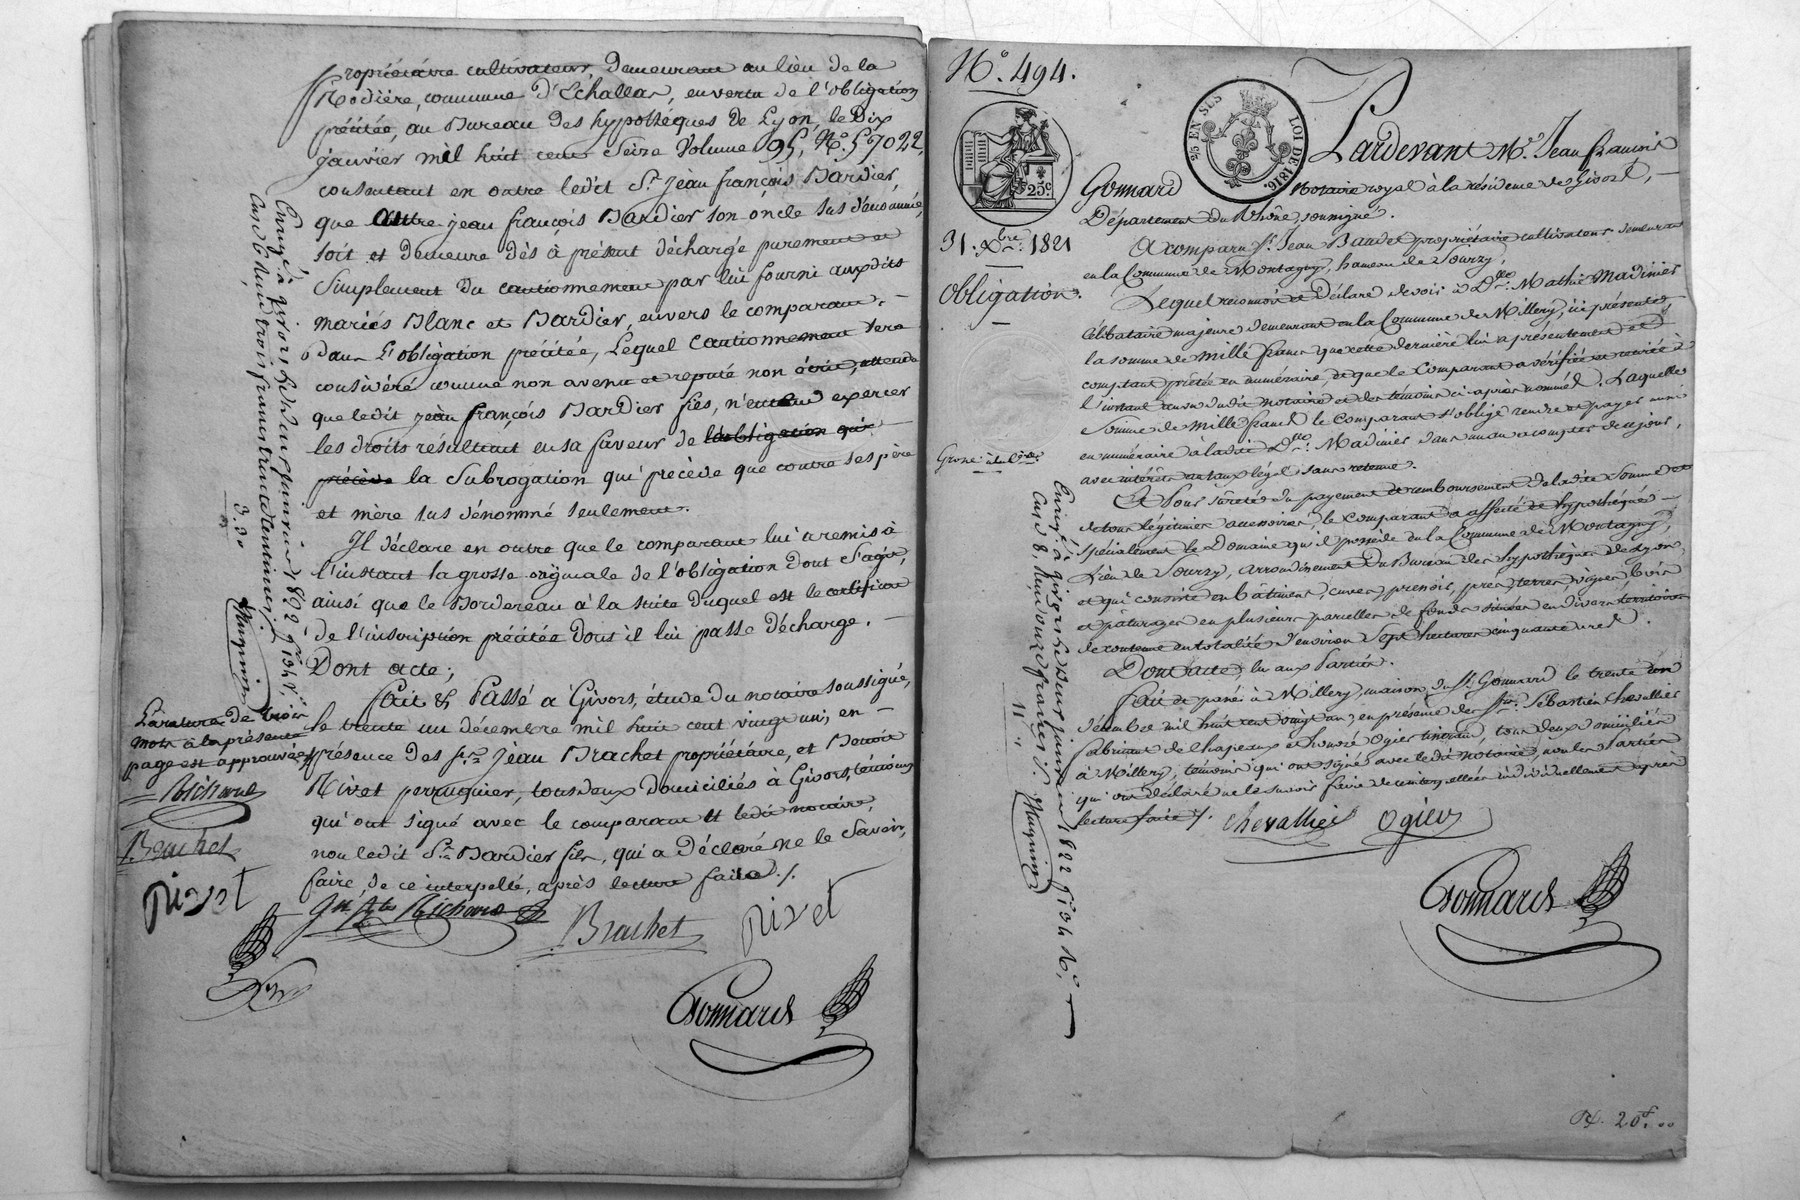 propriétaire cultivateur demeurant au lieu de la
Rodière, commune d'Echallas, en vertu de l'obligation
précitée, au Bureau des hypothèques de Lyon, le Dix
janvier mil huit cent Seize Volume 95, N.º 57022,
consentant en outre ledit S.r jean françois Bardier,
que autre jean françois Bardier son oncle sus dénommé,
soit et demeure dès à présent déchargé purement et
Simplement du cautionnement par lui fourni auxdits
mariés Blanc et Bardier, envers le comparant. —
Dans L'obligation précitée, Lequel Cautionnement sera
considéré comme non avenu et reputé non écrit, attendu
que ledit jean françois Bardier fils, n'entend exercer
les droits résultant en sa faveur de l'obligation qui
précède la Subrogation qui précède que contre ses père
et mère sus dénommé seulement.
Il déclare en outre que le comparant lui a remis à
l'instant la grosse originale de l'obligation dont s'agit,
ainsi que le Bordereau à la suite duquel est le certificat
de l'inscription précitée dont il lui passe décharge. —
Dont acte;
fait & Passé à Givors, étude du notaire soussigné,
le trente un décembre mil huit cent vingt un, en —
présence des s.rs Jean Brachet propriétaire, et Benoit
Rivet perruquier, tous deux domiciliés à Givors, témoins
qui ont signé avec le comparant et ledit notaire,
non ledit S.r Bardier fils, qui a Déclaré ne le Savoir
faire, de ce interpellé, après lecture faite ./.
Richard
Brachet
Rivet
Gonnard
La rature de trois
mots à la présente
page est approuvée
Richard
Brachet
Rivet
Enreg.é à givors le deux janvier 1822
Reçu trois francs trente centimes
3.30
N.º 494.
25 EN SUS
LOI DE 1816
25c
31. Xbre 1821
Obligation.
Pardevant M.e Jean françois
Gonnard Notaire royal à la résidence de Givors, —
Département du Rhône, soussigné.
A comparu S.r Jean Baudet propriétaire cultivateur demeurant
en la Commune de Montagny, hameau de Sourzy,
Lequel reconnoit et Déclare devoir à D.lle Mathie Madinier
Célibataire majeure demeurant en la Commune de Millery, ici présente,
la somme de mille francs que cette dernière lui a présentement et
comptant prêtée en numéraire, et que le Comparant a vérifiée et retirée à
l'instant au vu dudit notaire et des témoins ci-après nommés. Laquelle
Somme de mille francs le comparant s'oblige rendre et payer aussi
en numéraire à ladite D.lle Madinier dans un an à compter de ce jour,
avec intérêts au taux légal sans retenue.
Grosse à la Cre.
Et Pour sûreté du payement et remboursement de ladite Somme et
de tous légitimes accessoires, le comparant a affecté et hypothéqué —
spécialement le Domaine qu'il possède en la Commune de Montagny,
Lieu de Sourzy, arrondissement du Bureau des hypothèques de Lyon,
et qui consiste en bâtiment, cuves, pressoir, prés, terres, vignes, bois
et pâturages en plusieurs parcelles de fonds situées en divers territoires
de contenue en totalité d'environ Sept hectares cinquante ares.
Dont acte, lu aux Parties.
Fait et passé à Millery, maison du S.r Gonnard le trente un
décembre mil huit cent vingt un, en présence des S.rs Sébastien Chevallier
fabricant de Chapeaux et honoré Ogier tisserand, tous deux domiciliés
à Millery, témoins qui ont signé avec ledit notaire, non les Parties
qui ont déclaré ne le savoir faire de ce interpellées individuellement après
lecture faite ./.
Chevallier Ogier
Gonnard
Enreg.é à givors le deux janvier 1822
Reçu onze francs
11
20f..